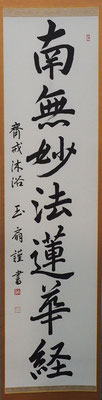 南無妙法蓮華経
齊戒沐浴 玉扇謹書